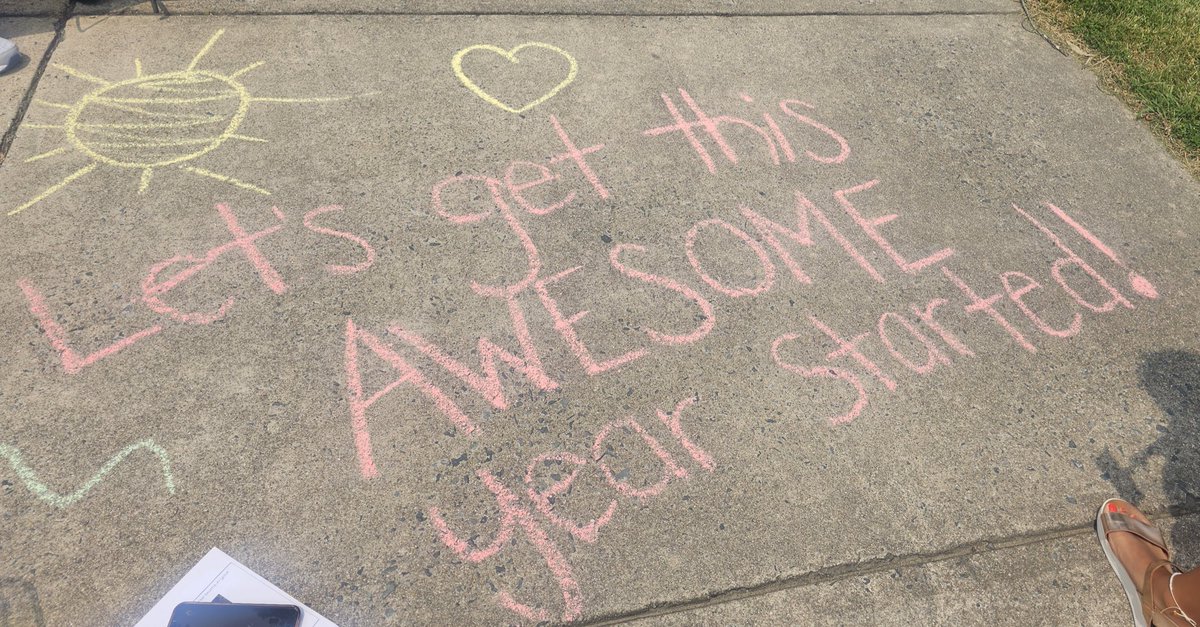 Let's get this
AWESOME
year started!